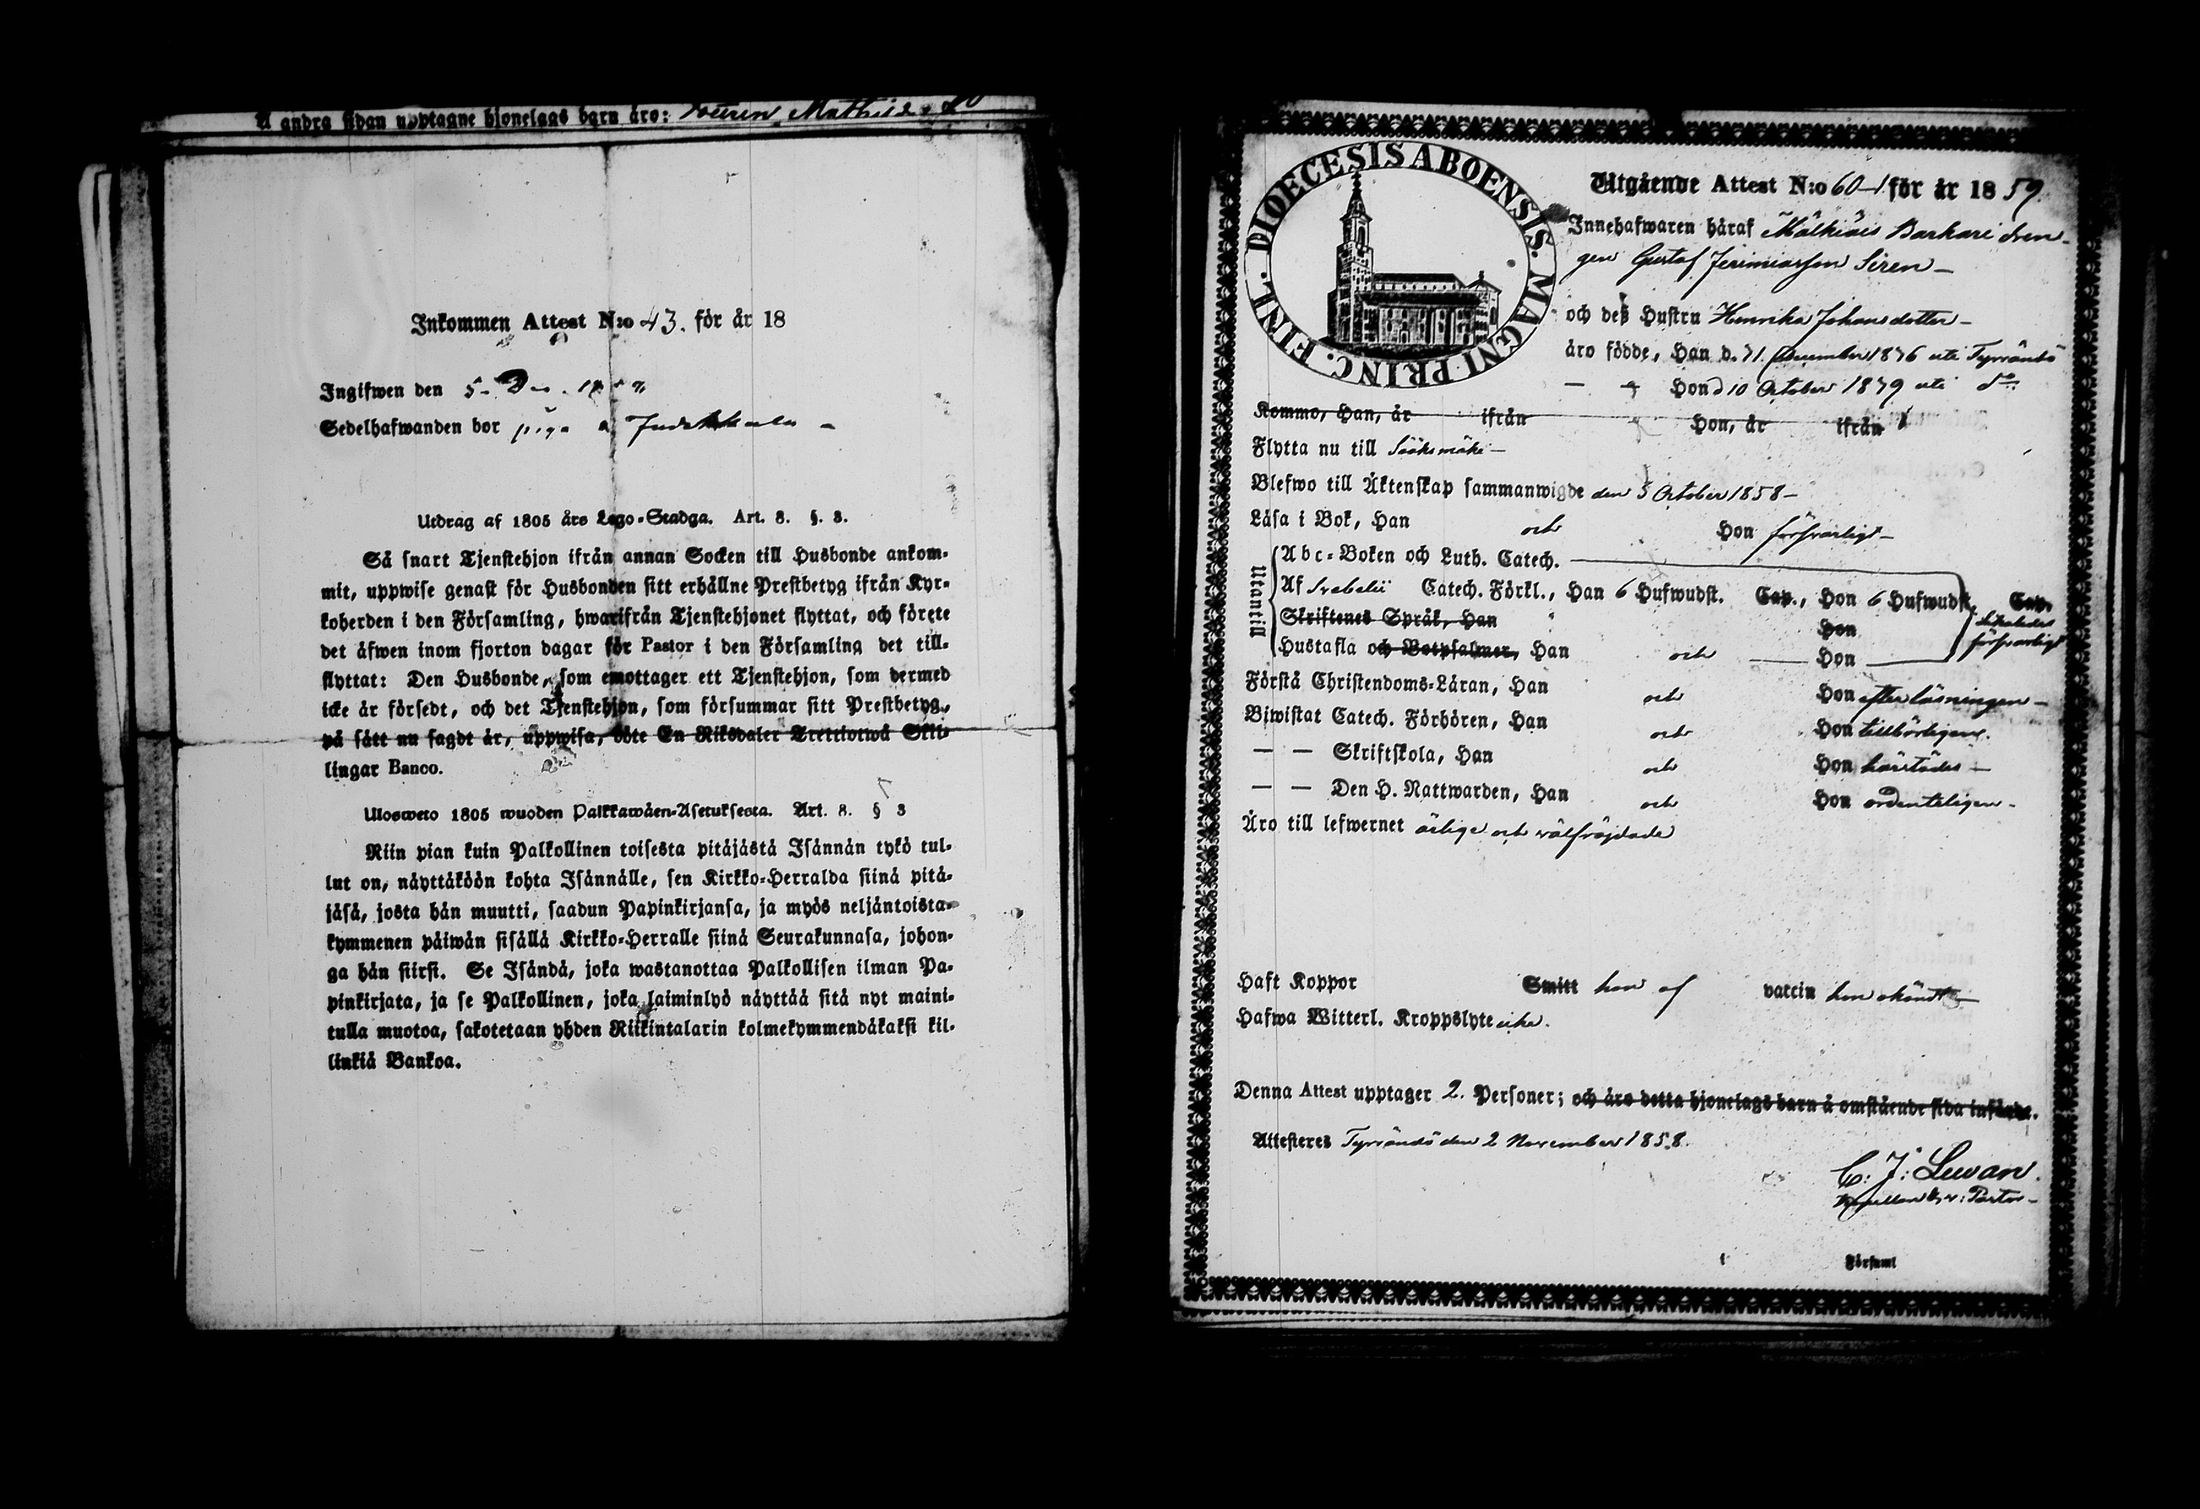 Å andra sidan upptagne hjonelags barn äro:
Inkommen Attest N:o 43. för år 18
Ingifwen den 5
Sedelhafwanden bor piga
Utdrag af 1805 års Lego-Stadga. Art. 8. §. 3.
Så snart Tjenstehjon ifrån annan Socken till Husbonde ankom-
mit, uppwise genast för Husbonden sitt erhållne Prestbetyg ifrån Kyr-
koherden i den Församling, hwarifrån Tjenstehjonet flyttat, och förete
det äfwen inom fjorton dagar för Pastor i den Församling det till-
flyttat: Den Husbonde, som emottager ett Tjenstehjon, som dermed
icke är försedt, och det Tjenstehjon, som försummar sitt Prestbetyg,
på sätt nu sagdt är, uppwisa, böte En Riksdaler Trettiotwå Skil-
lingar Banco.
Ulosweto 1805 wuoden Palkkawäen-Asetuksesta. Art. 8. § 3
Niin pian kuin Palkollinen toisesta pitäjästä Isännän tykö tul-
lut on, näyttäköön kohta Isännälle, sen Kirkko-Herralda siinä pitä-
jäsä, josta hän muutti, saadun Papinkirjansa, ja myös neljäntoista-
kymmenen päiwän sisällä Kirkko-Herralle siinä Seurakunnasa, johon-
ga hän siirsi. Se Isändä, joka wastanottaa Palkollisen ilman Pa-
pinkirjata, ja se Palkollinen, joka laiminlyö näyttää sitä nyt maini-
tulla muotoa, sakotetaan yhden Riikintalarin kolmekymmendäkaksi kil-
linkiä Bankoa.
DIOECESIS ABOENSIS. MAGNI PRINC. FINL.
Utgående Attest N:o 60-1 för år 1859.
Innehafwaren häraf Mälkiäis Barkare dren-
gen Gustaf Jeremiasson Siren-
och deß Hustru Henrika Johansdotter-
äro födde, Han d. 31 December 1836 uti Tyrväntö
Hon d 10 October 1839 uti do
Kommo, Han, år ifrån Hon, år ifrån
Flytta nu till Sääksmäki-
Blefwo till Äktenskap sammanwigde den 5 October 1858-
Läsa i Bok, Han och Hon försvarligt-
Utantill
Abc-Boken och Luth. Catech.
Af Svebelii Catech. Förkl., Han 6 Hufwudst. Cap., Hon 6 Hufwudst. Cap.
Skriftenes Språk, Han Hon likaledes
Hustafla och Botpsalmer, Han och Hon försvarligt
Förstå Christendoms-Läran, Han och Hon efter läsningen-
Biwistat Catech. Förhören, Han och Hon tillbörligen.
— — Skriftskola, Han och Hon härstädes-
— — Den H. Nattwarden, Han och Hon ordenteligen-
Äro till lefwernet ärlige och välfrägdade
Haft Koppor Smitt han af vaccin hon okändt-
Hafwa Witterl. Kroppslyte icke.
Denna Attest upptager 2. Personer; och äro detta hjonelags barn å omstående sida införde.
Attesteres Tyrväntö den 2 November 1858.
C: J: Lewan.
Kapellan & v: Pastor-
Församl